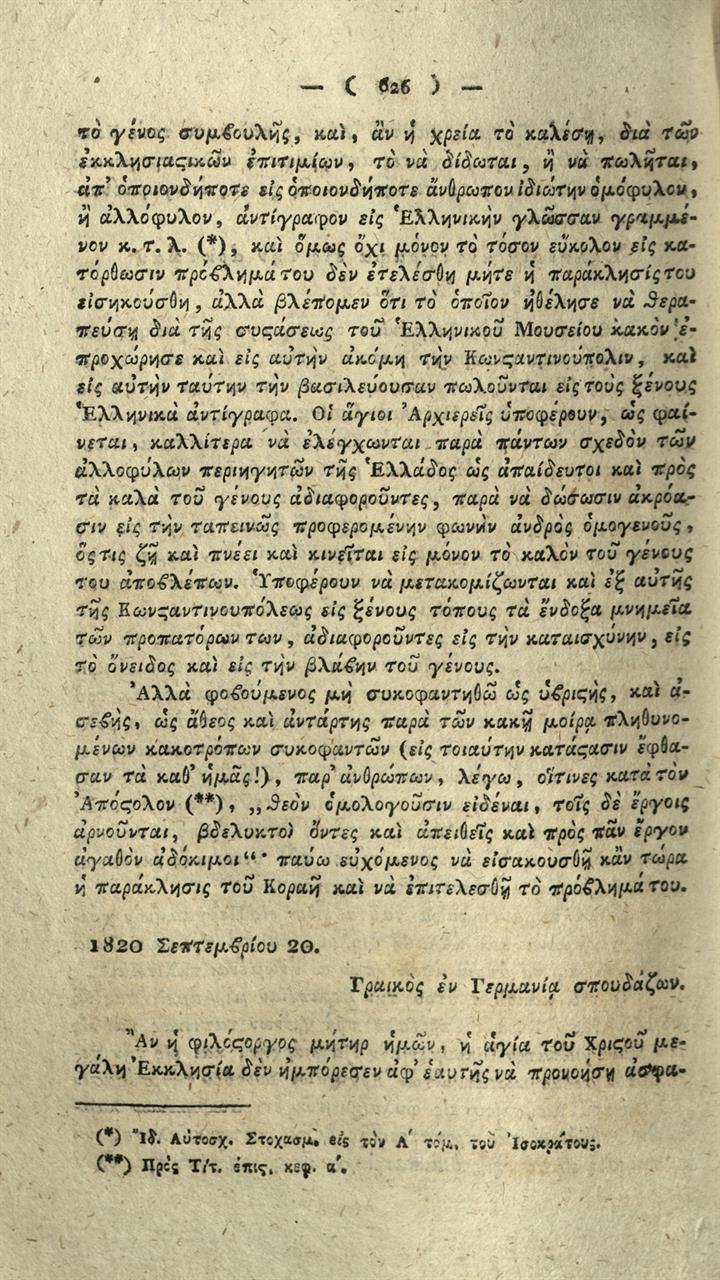 — ( 626 ) —
τὸ γένος συμβουλῆς, καὶ, ἂν ἡ χρεία τὸ καλέσῃ, διὰ τῶν
ἐκκλησιαϛικῶν ἐπιτιμίων, τὸ νὰ δίδωται, ἢ νὰ πωλῆται,
ἀπ' ὁποιονδήποτε εἰς ὁποιονδήποτε ἄνθρωπον ἰδιώτην ὁμόφυλον,
ἢ ἀλλόφυλον, ἀντίγραφον εἰς Ἑλληνικὴν γλῶσσαν γραμμέ-
νον κ. τ. λ. (*), καὶ ὅμως ὄχι μόνον τὸ τόσον εὔκολον εἰς κα-
τόρθωσιν πρόβλημά του δὲν ἐτελέσθη μήτε ἡ παράκλησίς του
εἰσηκούσθη, ἀλλὰ βλέπομεν ὅτι τὸ ὁποῖον ἠθέλησε νὰ θερα-
πεύσῃ διὰ τῆς συϛάσεως τοῦ Ἑλληνικοῦ Μουσείου κακὸν ἐ-
προχώρησε καὶ εἰς αὐτὴν ἀκόμη τὴν Κωνϛαντινούπολιν, καὶ
εἰς αὐτὴν ταύτην τὴν βασιλεύουσαν πωλοῦνται εἰς τοὺς ξένους
Ἑλληνικὰ ἀντίγραφα. Οἱ ἅγιοι Ἀρχιερεῖς ὑποφέρουν, ὡς φαί-
νεται, καλλίτερα νὰ ἐλέγχωνται παρὰ πάντων σχεδὸν τῶν
ἀλλοφύλων περιηγητῶν τῆς Ἑλλάδος ὡς ἀπαίδευτοι καὶ πρὸς
τὰ καλὰ τοῦ γένους ἀδιαφοροῦντες, παρὰ νὰ δώσωσιν ἀκρόα-
σιν εἰς τὴν ταπεινῶς προφερομένην φωνὴν ἀνδρὸς ὁμογενοῦς,
ὅϛις ζῇ καὶ πνέει καὶ κινεῖται εἰς μόνον τὸ καλὸν τοῦ γένους
του ἀποβλέπων. Ὑποφέρουν νὰ μετακομίζωνται καὶ ἐξ αὐτῆς
τῆς Κωνϛαντινουπόλεως εἰς ξένους τόπους τὰ ἔνδοξα μνημεῖα
τῶν προπατόρων των, ἀδιαφοροῦντες εἰς τὴν καταισχύνην, εἰς
τὸ ὄνειδος καὶ εἰς τὴν βλάβην τοῦ γένους.
Ἀλλὰ φοβούμενος μὴ συκοφαντηθῶ ὡς ὑβριϛὴς, καὶ ἀ-
σεβὴς, ὡς ἄθεος καὶ ἀντάρτης παρὰ τῶν κακῇ μοίρᾳ πληθυνο-
μένων κακοτρόπων συκοφαντῶν (εἰς τοιαύτην κατάϛασιν ἔφθα-
σαν τὰ καθ' ἡμᾶς!), παρ' ἀνθρώπων, λέγω, οἵτινες κατὰ τὸν
Ἀπόϛολον (**), „Θεὸν ὁμολογοῦσιν εἰδέναι, τοῖς δὲ ἔργοις
ἀρνοῦνται, βδελυκτοὶ ὄντες καὶ ἀπειθεῖς καὶ πρὸς πᾶν ἔργον
ἀγαθὸν ἀδόκιμοι“· παύω εὐχόμενος νὰ εἰσακουσθῇ κᾂν τώρα
ἡ παράκλησις τοῦ Κοραῆ καὶ νὰ ἐπιτελεσθῇ τὸ πρόβλημά του.
1820 Σεπτεμβρίου 20.
Γραικὸς ἐν Γερμανίᾳ σπουδάζων.
Ἂν ἡ φιλόϛοργος μήτηρ ἡμῶν, ἡ ἁγία τοῦ Χριϛοῦ με-
γάλη Ἐκκλησία δὲν ἠμπόρεσεν ἀφ' ἑαυτῆς νὰ προνοήσῃ ἀσφα-
(*) Ἴδ. Αὐτοσχ. Στοχασμ. εἰς τὸν Α' τόμ. τοῦ Ἰσοκράτους.
(**) Πρὸς Τίτ. ἐπιϛ. κεφ. α'.